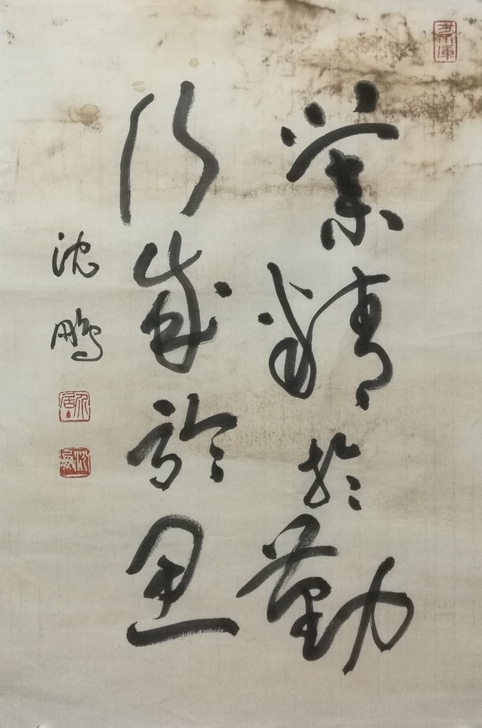 業精於勤
行成於思
沈鹏